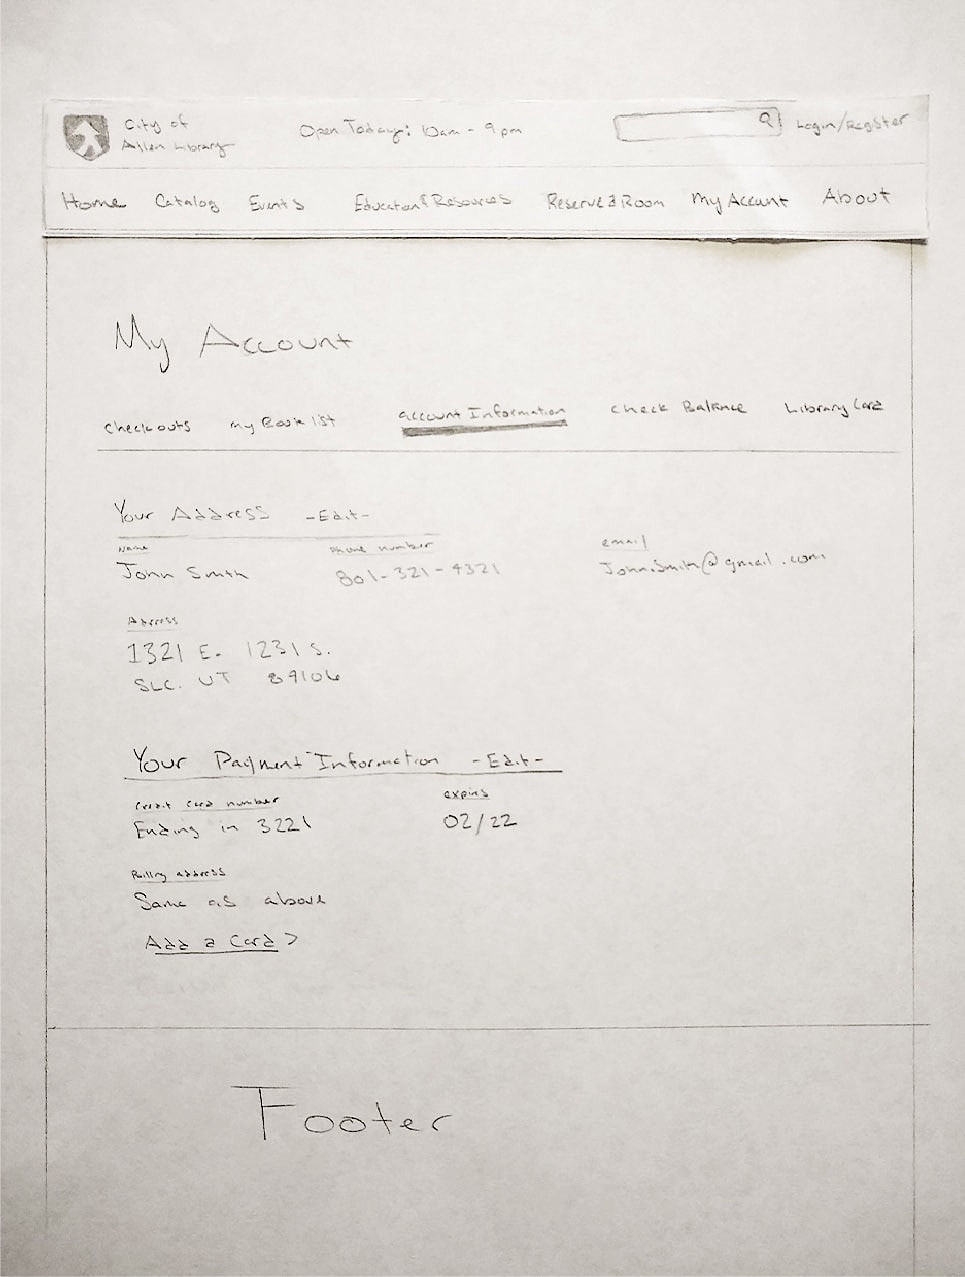 City of
Library
Open Today: 10am - 9pm
Login/Register
Home Catalog Events Education & Resources Reserve a Room My Account About
My Account
Checkouts my Book list account Information Check Balance Library Card
Your Address -Edit-
Name Phone number email
John Smith 801-321-4321 John.Smith@gmail.com
Address
1321 E. 1231 S.
SLC. UT 89106
Your Payment Information -Edit-
Credit Card number expires
Ending in 3221 02/22
Billing address
Same as above
Add a Card >
Footer